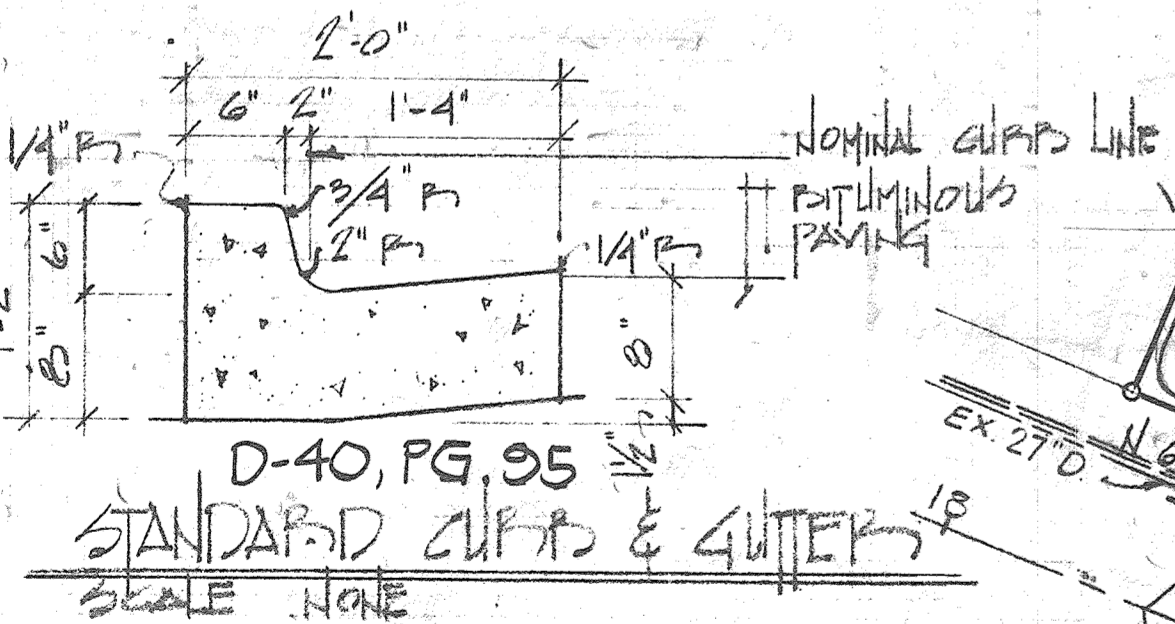 2'-0"
6" 2" 1'-4"
1/4" R
NOMINAL CURB LINE
3/4" R
BITUMINOUS
PAVING
2" R
1/4" R
6"
8"
8"
1 1/2"
EX. 27" D.
N 6
18
D-40, PG. 95
STANDARD CURB & GUTTER
SCALE NONE